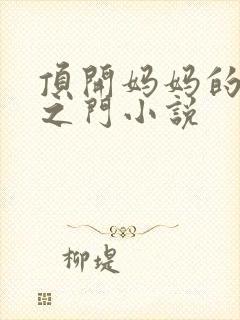 頂開妈妈的
之門小説
柳堤